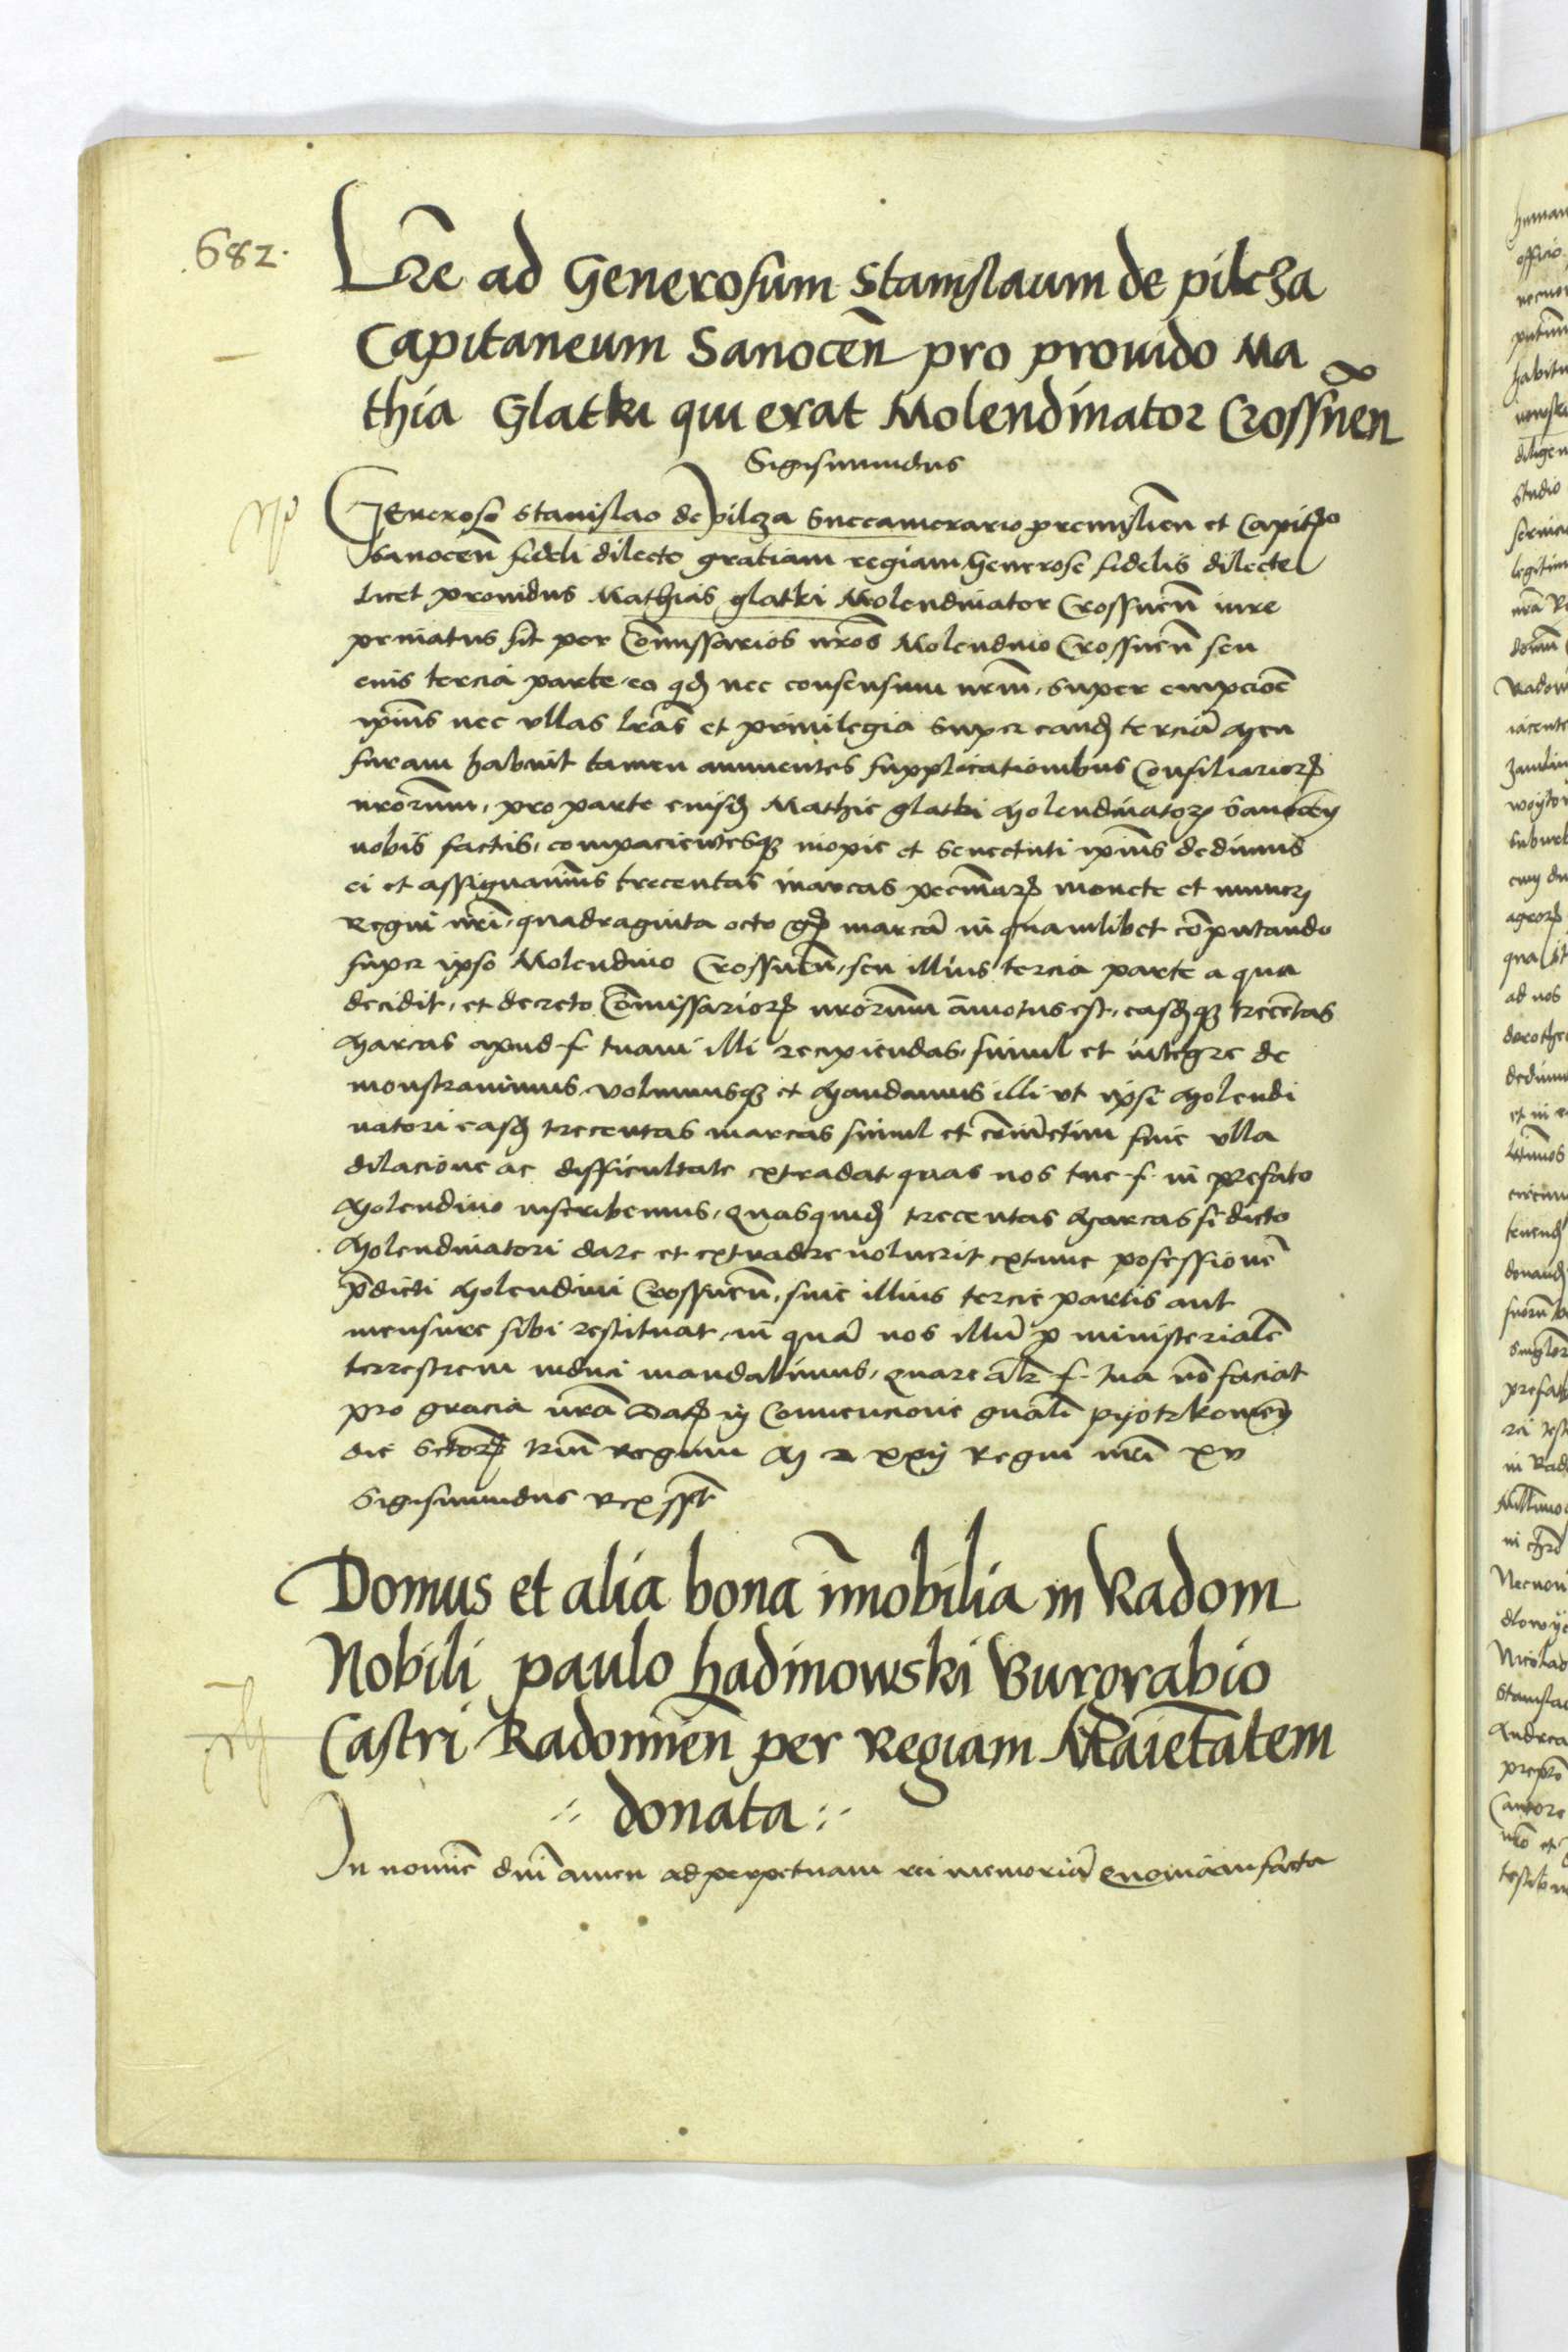 682.
Lr̄e ad Generosum Stanislaum de pilcza
Capitaneum Sanocen̄ pro prouido Ma
thia Glatki qui erat Molendinator Crossnen̄
Sigismundus
Generoso Stanislao de pilcza Succamerario premislien̄ et Capit̄o
Sanocen̄ fideli dilecto gratiam regiam Generose fidelis dilecte
Licet prouidus Mathias glatki Molendinator Crossnen̄ iure
priuatus sit per Com̄issarios nr̄os Molendino Crossnen̄ seu
eius tercia parte eo qd̄ nec consensum nr̄m, super empcioē
ip̄ius nec vllas lr̄as et priuilegia super eand̄ terciā men
suram habuit tamen annuentes supplicationibus Consiliarior̄
nr̄orum, pro parte eiusd̄ Mathie glatki Molendinator̄ Sanocen̄
nobis factis, compacientesq̄ inopie et senectuti ip̄ius dedimus
ei et assignauim̄s trecentas marcas pecuniar̄ monete et numeri
Regni nr̄i, quadraginta octo gr̄ marcā in quamlibet cōputando
super ipso Molendino Crossnen̄, seu illius tercia parte a qua
decidit, et decreto Com̄issarior̄ nr̄orum am̄otus est, easd̄q̄ trecētas
Marcas apud f. tuam illi recipiendas, simul et integre de
monstrauimus volumusq̄ et Mandamus illi vt ipsi Molendi
natori easd̄ trecentas marcas simul et cōiūctim sine vlla
dilacione ac difficultate extradat quas nos tue f. in prefato
Molendino inscribemus, Quasquid̄ trecentas Marcas si dicto
Molendinatori dare et extradere noluerit extunc posessionē
p̄dicti Molendini Crossnen̄, siue illius tercie partis aut
mensure sibi restituat, in quā nos illū p̄ ministerialē
terrestrem induci mandabimus, Quare alr̄ f. tua nō faciat
pro gracia nr̄a Dat̄ in Conuencione gn̄ali pyotrkowien̄
die Sctor̄ trium Regum M D xxij Regni nr̄i xv
Sigismundus Rex sspt̄
Domus et alia bona im̄obilia in Radom
Nobili paulo hadinowski Burgrabio
Castri Radomien̄ per Regiam Maiestatem
donata
In nomine dn̄i amen ad perpetuam rei memoriā Quoniam facta